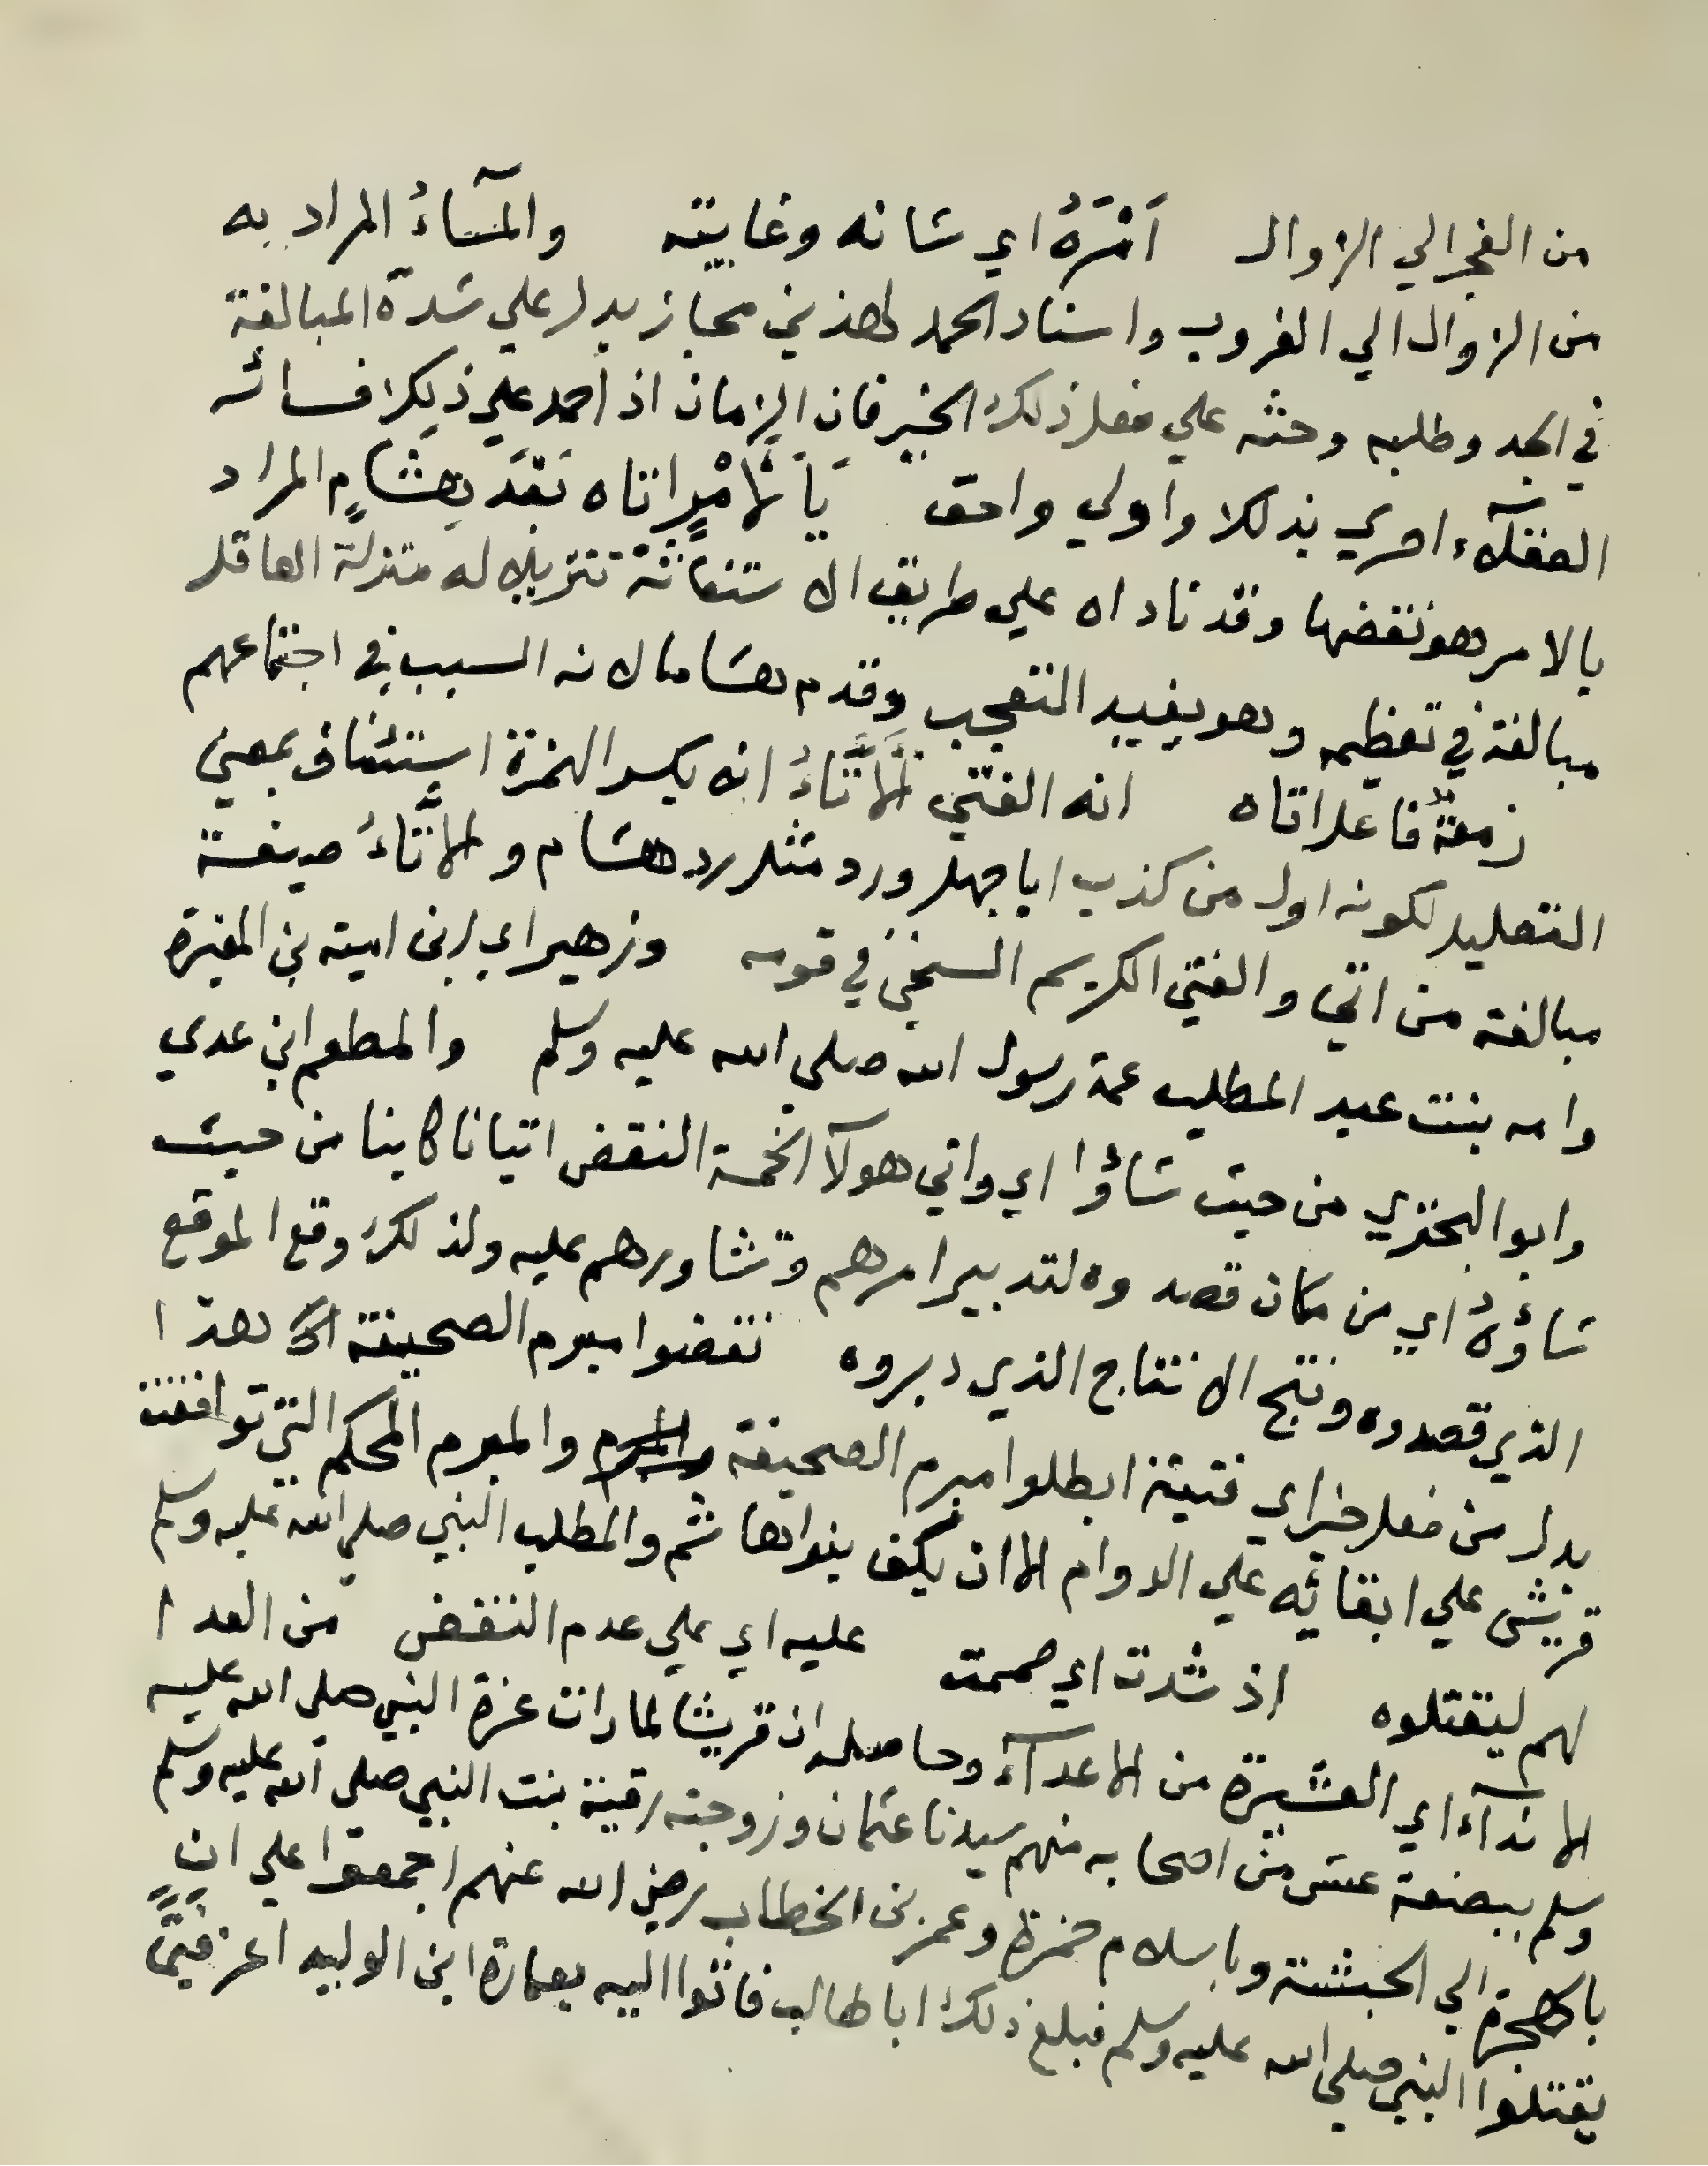 من الفجر الي الزوال اَمْرَهُ اي شانه وغايته والمسآءُ المراد به
من الزوال الي الغروب واسناد الحمد لهذين مجاز يدل علي شدة المبالغة
في الجد وطلبه وحثه علي فعل ذلك الخير فان الزمان اذ احمد علي ذلك فسائر
العقلآء احري بذلك واولي واحق يَا لَأَمْرٍ اتاه بَعْدَ هِشَامٍ المراد
بالامر هو نقضها وقد ناداه علي طريق الاستغاثة تنزيلا له منزلة العاقل
مبالغة في تعظيمه وهو يفيد التعجب وقدم هشاما لانه السبب في اجتماعهم
زمعةُ فاعل اتاه انه الفتي لَلْأَتَّاءُ انه بكسر الهمزة استئناف بمعني
التعليل لكونه اول من كذب ابا جهل ورد مثل رد هشام ولأتَّاءُ صيغة
مبالغة من اتي والفتي الكريم السخي في قومه وزهير اي ابن امية بن المغيرة
وامه بنت عبد المطلب عمة رسول الله صلي الله عليه وسلم والمطعم ابن عدي
وابو البختري من حيث شاؤا اي واتي هولآ الخمسة النقض اتيانا كاينا من حيث
شاؤهُ اي من مكان قصدوه لتدبير امرهم وتشاورهم عليه ولذلك وقع الموقع
الذي قصدوه ونتج الانتاج الذي دبروه نقضوا مبرم الصحيفة اذ هذا
بدل من فعل خير اي فتية ابطلوا مبرم الصحيفة والمبرم المحكم التي توافقت
قريش علي ابقائه علي الدوام الا ان يكف بنوا هاشم والمطلب النبي صلي الله عليه وسلم
لهم ليقتلوه اذ شدت اي صممت عليه اي علي عدم النقض من العدا
الانداء اي العشيرة من الاعدآء وحاصله ان قريشا لما رات عزة النبي صلي الله عليه
وسلم ببضعة عشر من اصحابه منهم سيدنا عثمان وزوجته رقية بنت النبي صلي الله عليه وسلم
بالهجرة الي الحبشة وباسلام حمزة وعمر بن الخطاب رضي الله عنهم اجمعوا علي ان
يقتلوا النبي صلي الله عليه وسلم فبلغ ذلك ابا طالب فاتوا اليه بعمارة ابن الوليد اعز فتيً